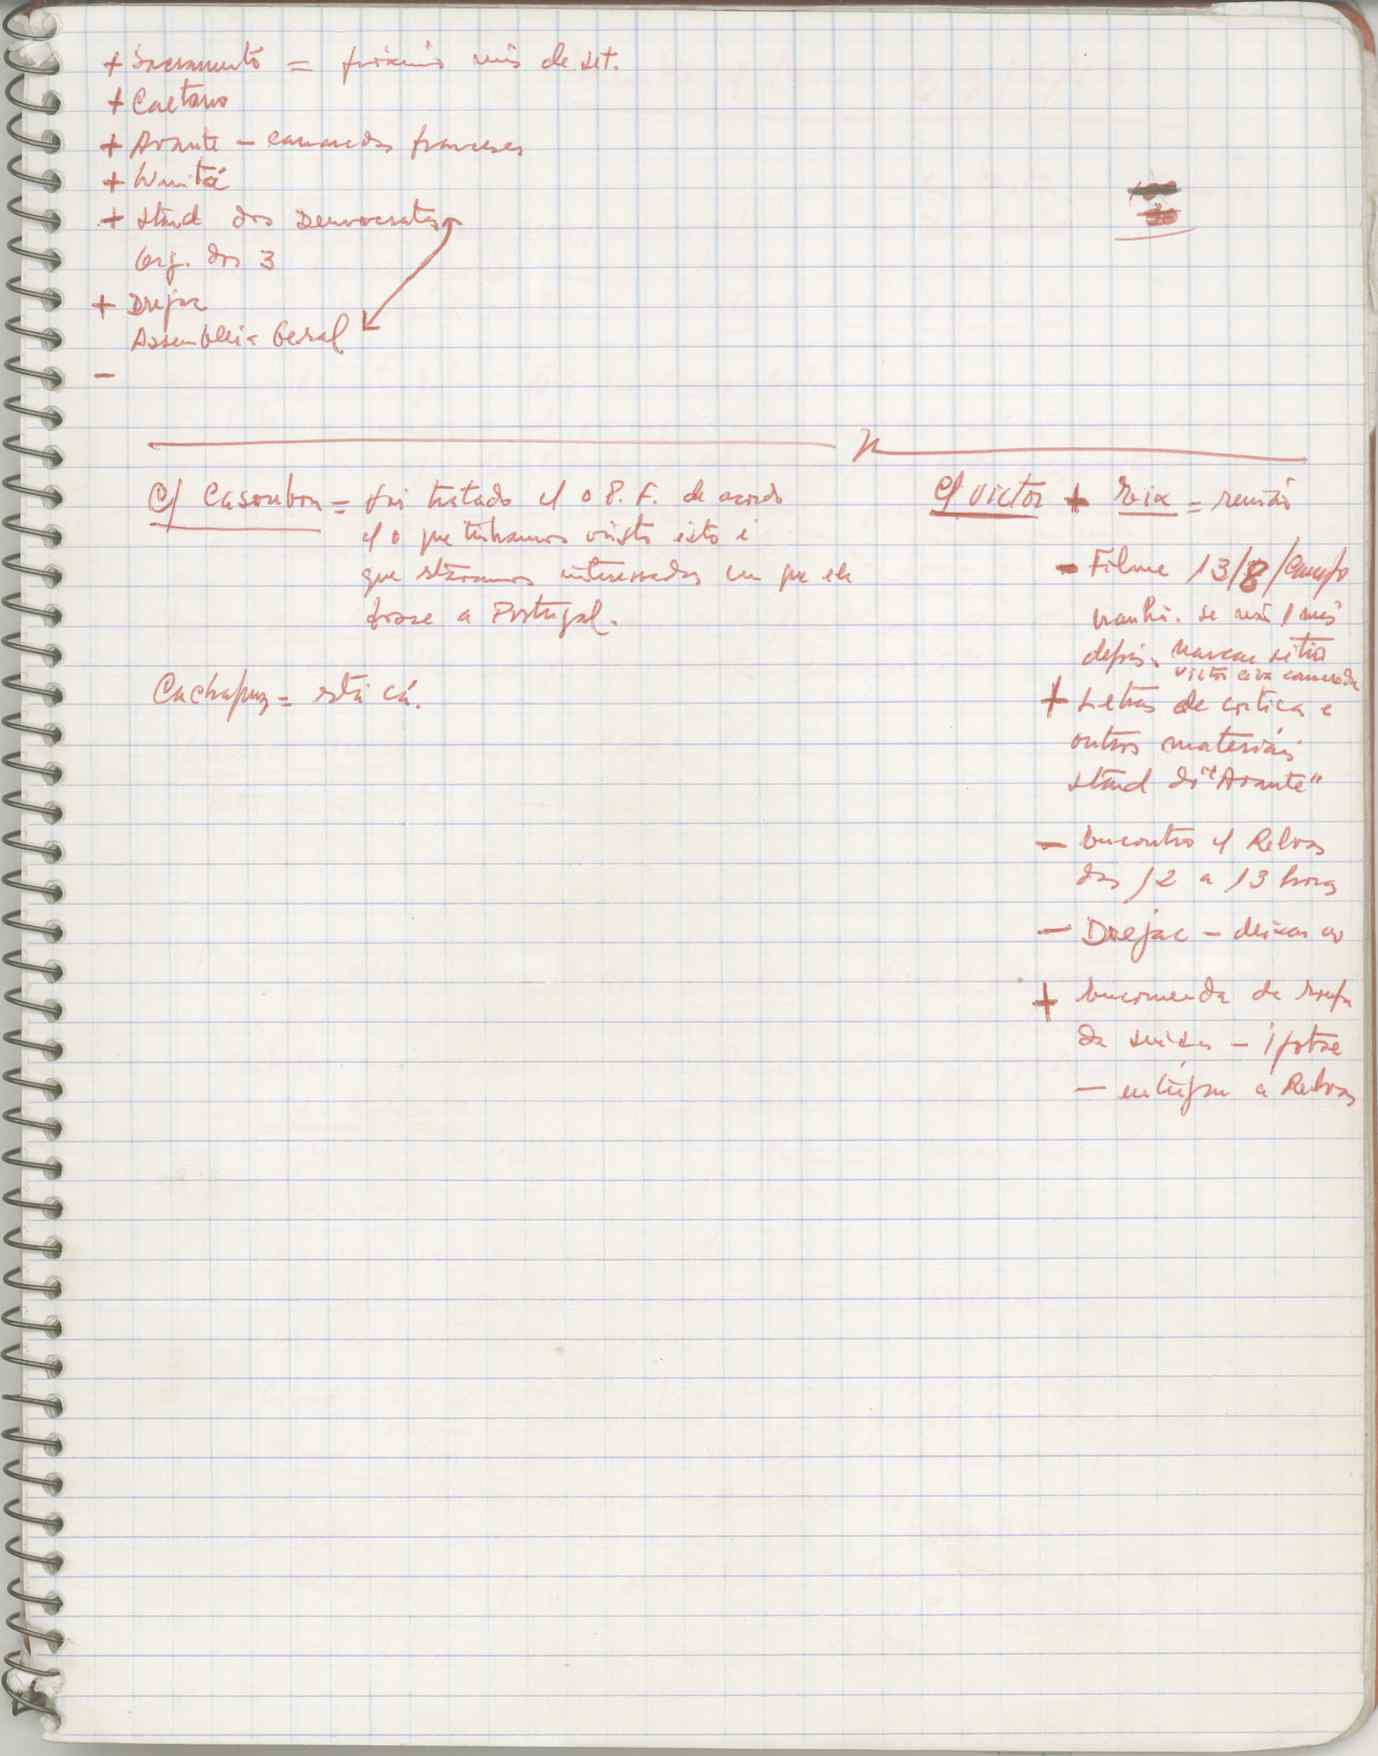 + Sacramento = próximo mês de set.
+ Caetano
+ Avante – camaradas franceses
+ Unitá
+ stand dos Democratas
Org. dos 3
+ Drejac
Assembleia Geral
–
C/ Casoubon = foi tratado c/ o P. F. de acordo
c/ o que tinhamos visto isto é
que estávamos interessados em que ele
fosse a Portugal.
Cachapuz = está cá.
C/ Victor + Roix = reunião
– Filme 13/8/
manhã. se não 1 mês
depois. marcar sitio
Victor camarada
+ Letras de critica e
outros materiais
stand do "Avante"
– Encontro c/ Relvas
das 12 a 13 horas
– Drejac – deixar ao
+ Encomenda de roupa
da – 
– entregou a Relvas